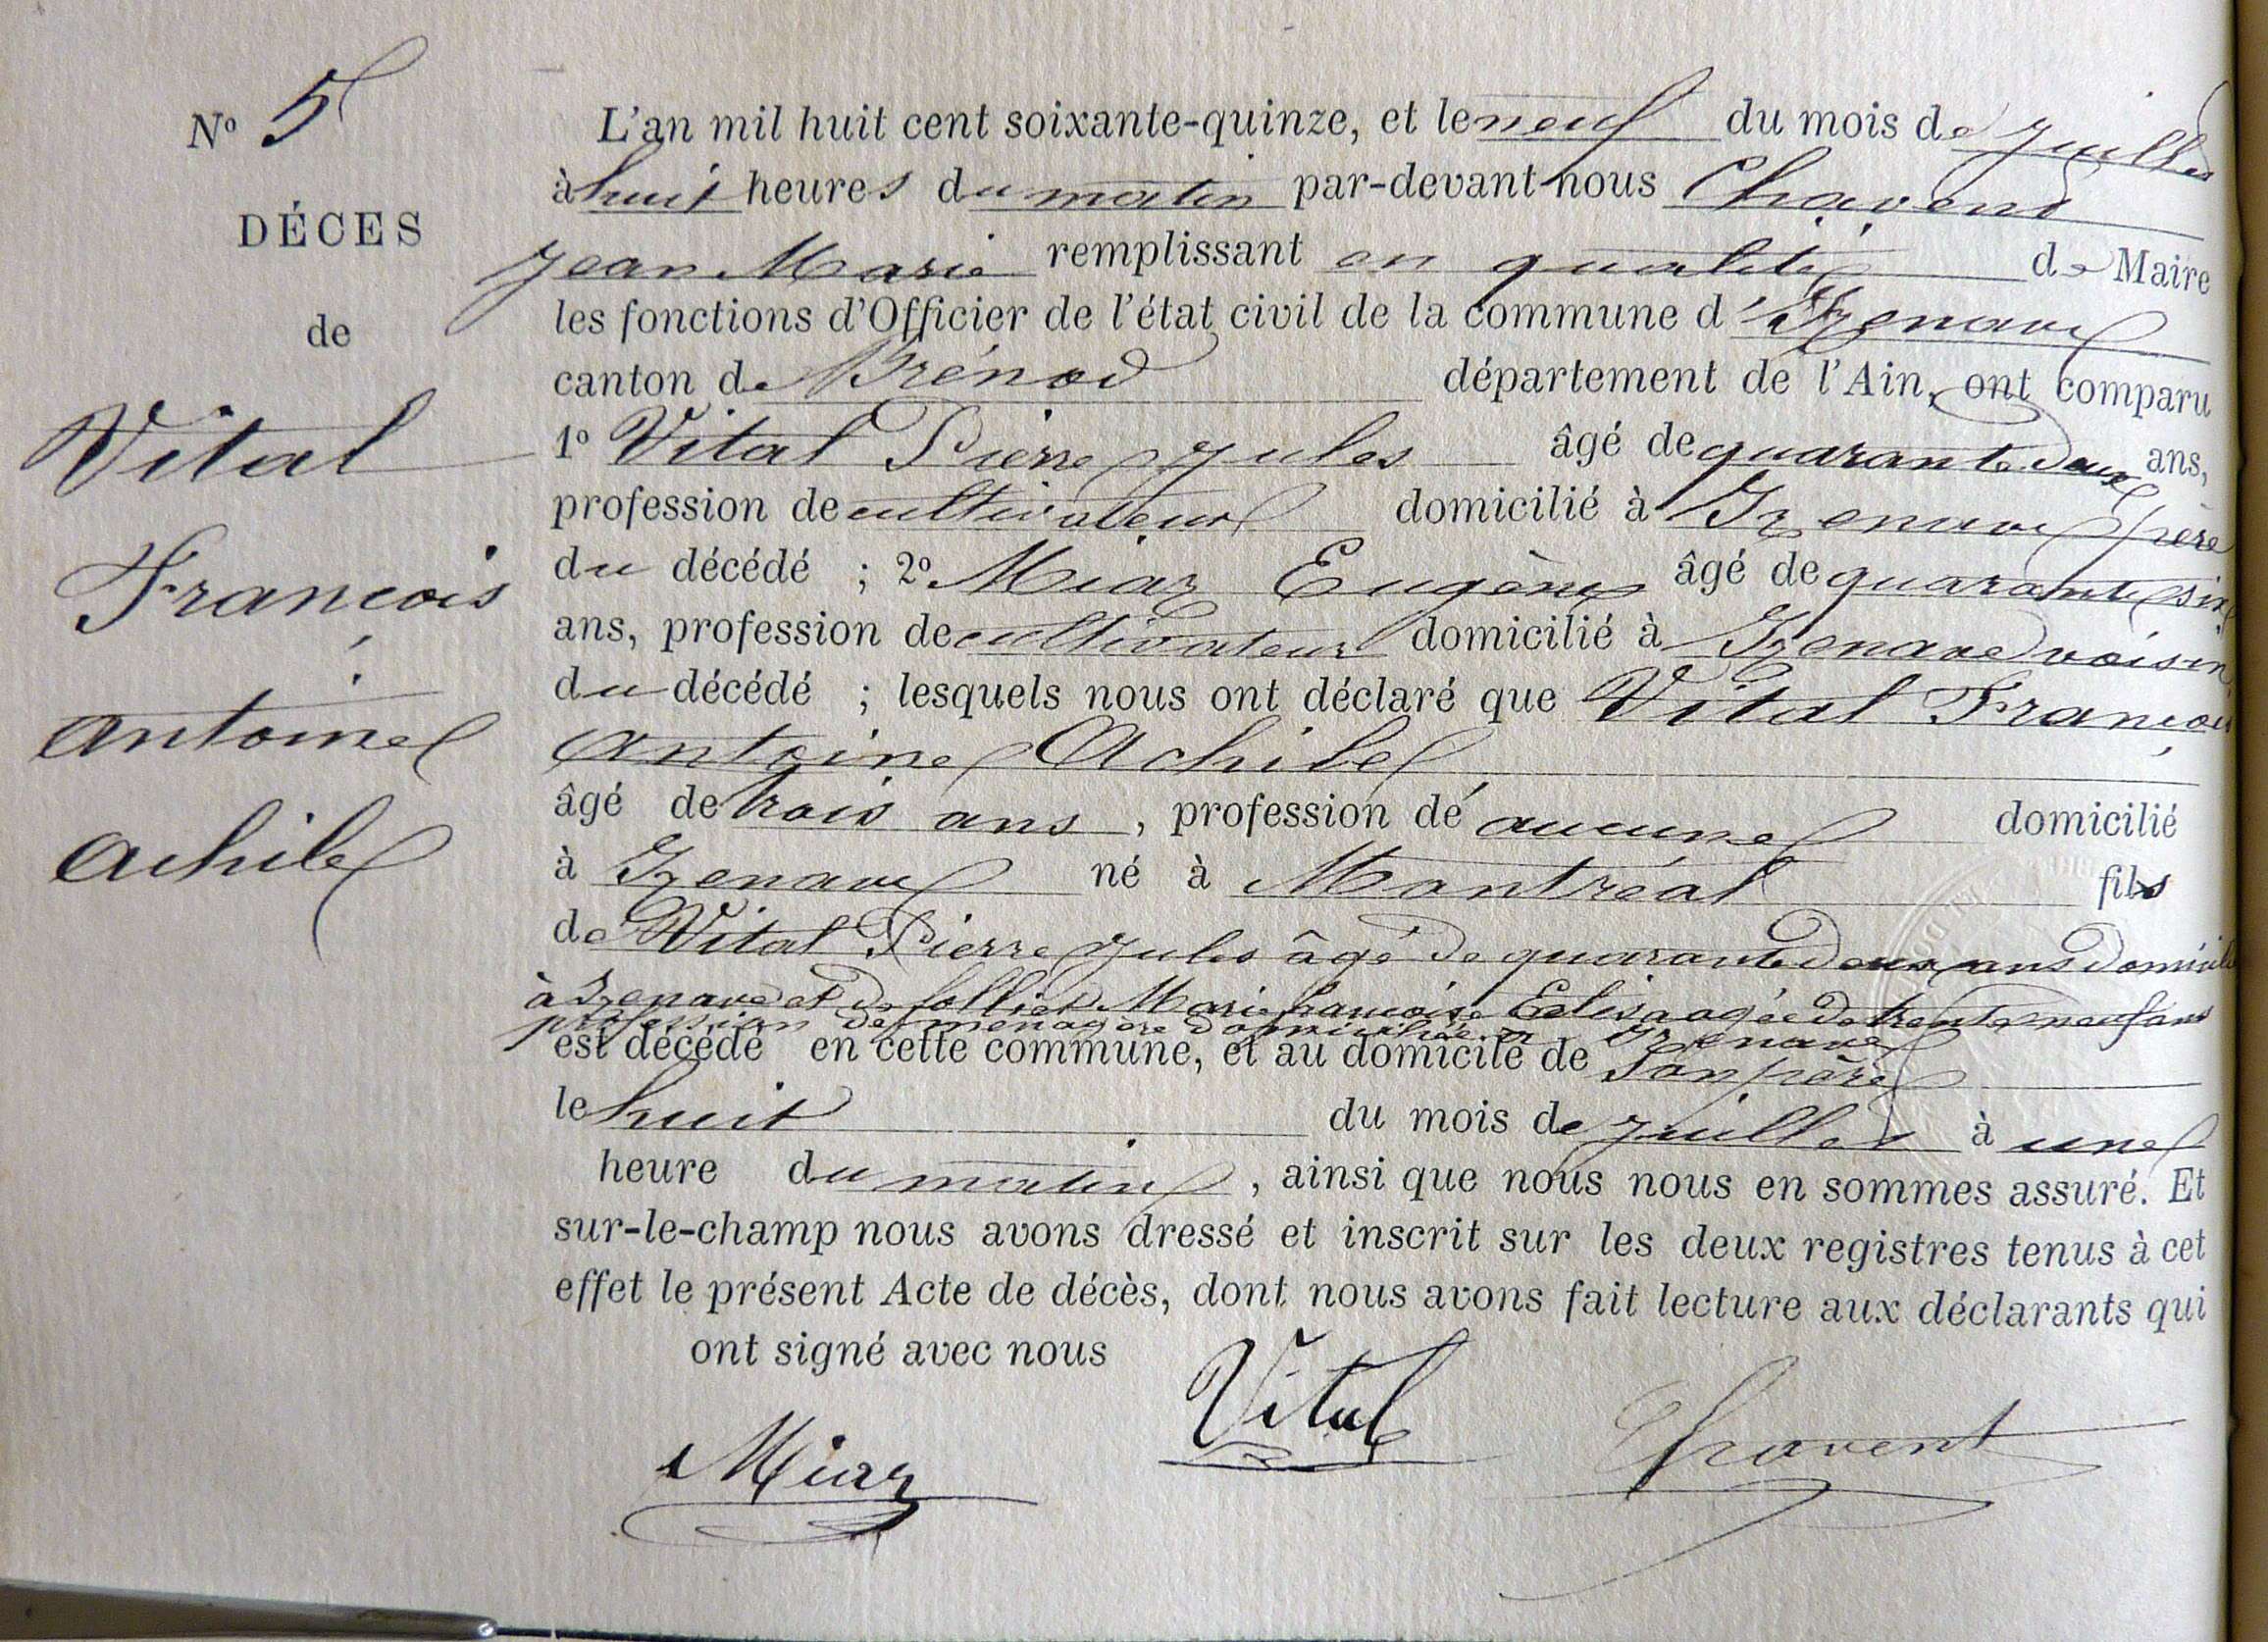 N° 5
DÉCES
de
Vital
François
Antoine
Achile
L'an mil huit cent soixante-quinze, et le neuf du mois de juillet
à huit heures du matin par-devant nous Chavent
Jean Marie remplissant en qualité de Maire
les fonctions d'Officier de l'état civil de la commune d'Izenave
canton de Brénod département de l'Ain, ont comparu
1° Vital Pierre Jules âgé de quarante deux ans,
profession de cultivateur domicilié à Izenave père
du décédé ; 2° Miaz Eugène âgé de quarante six
ans, profession de cultivateur domicilié à Izenave voisin
du décédé ; lesquels nous ont déclaré que Vital François
Antoine Achile
âgé de trois ans, profession de aucune domicilié
à Izenave né à Montréal fils
de Vital Pierre Jules âgé de quarante deux ans domicilié
à Izenave et de folliet Marie françoise Elisa agée de trente neuf ans
profession de ménagère domiciliée à Izenave
est décédé en cette commune, et au domicile de Son père
le huit du mois de juillet à une
heure du matin, ainsi que nous nous en sommes assuré. Et
sur-le-champ nous avons dressé et inscrit sur les deux registres tenus à cet
effet le présent Acte de décès, dont nous avons fait lecture aux déclarants qui
ont signé avec nous
Miaz Vital Chavent